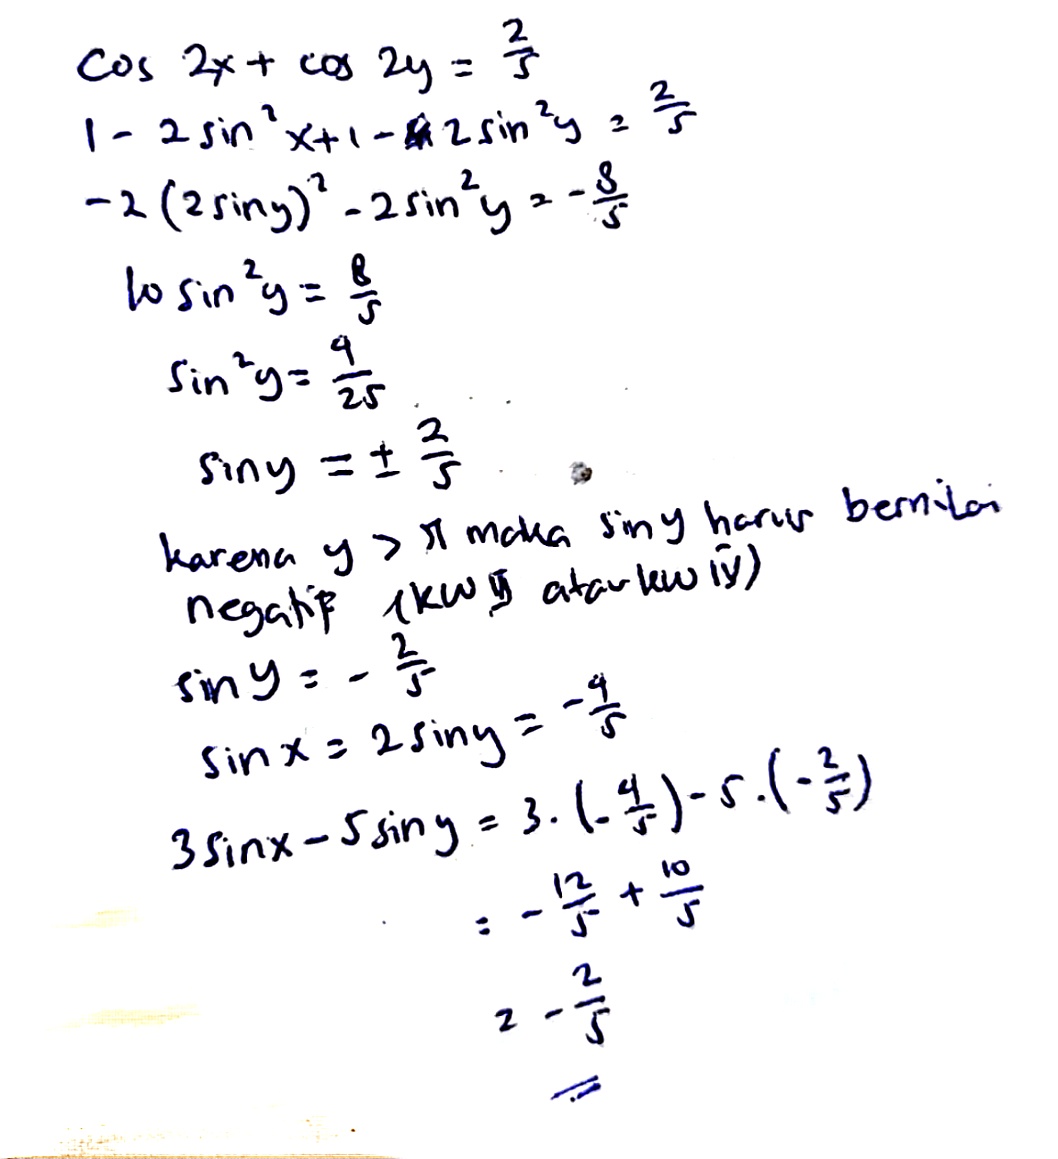 cos 2x + cos 2y = 2/5
1 - 2 sin²x + 1 - 2 sin²y = 2/5
-2 (2 sin y)² - 2 sin²y = -8/5
10 sin²y = 8/5
sin²y = 4/25
sin y = ± 2/5
karena y > π maka sin y harus bernilai
negatif (kw atau kw iv)
sin y = - 2/5
sin x = 2 sin y = - 4/5
3 sin x - 5 sin y = 3. (- 4/5) - 5. (- 2/5)
= - 12/5 + 10/5
= - 2/5